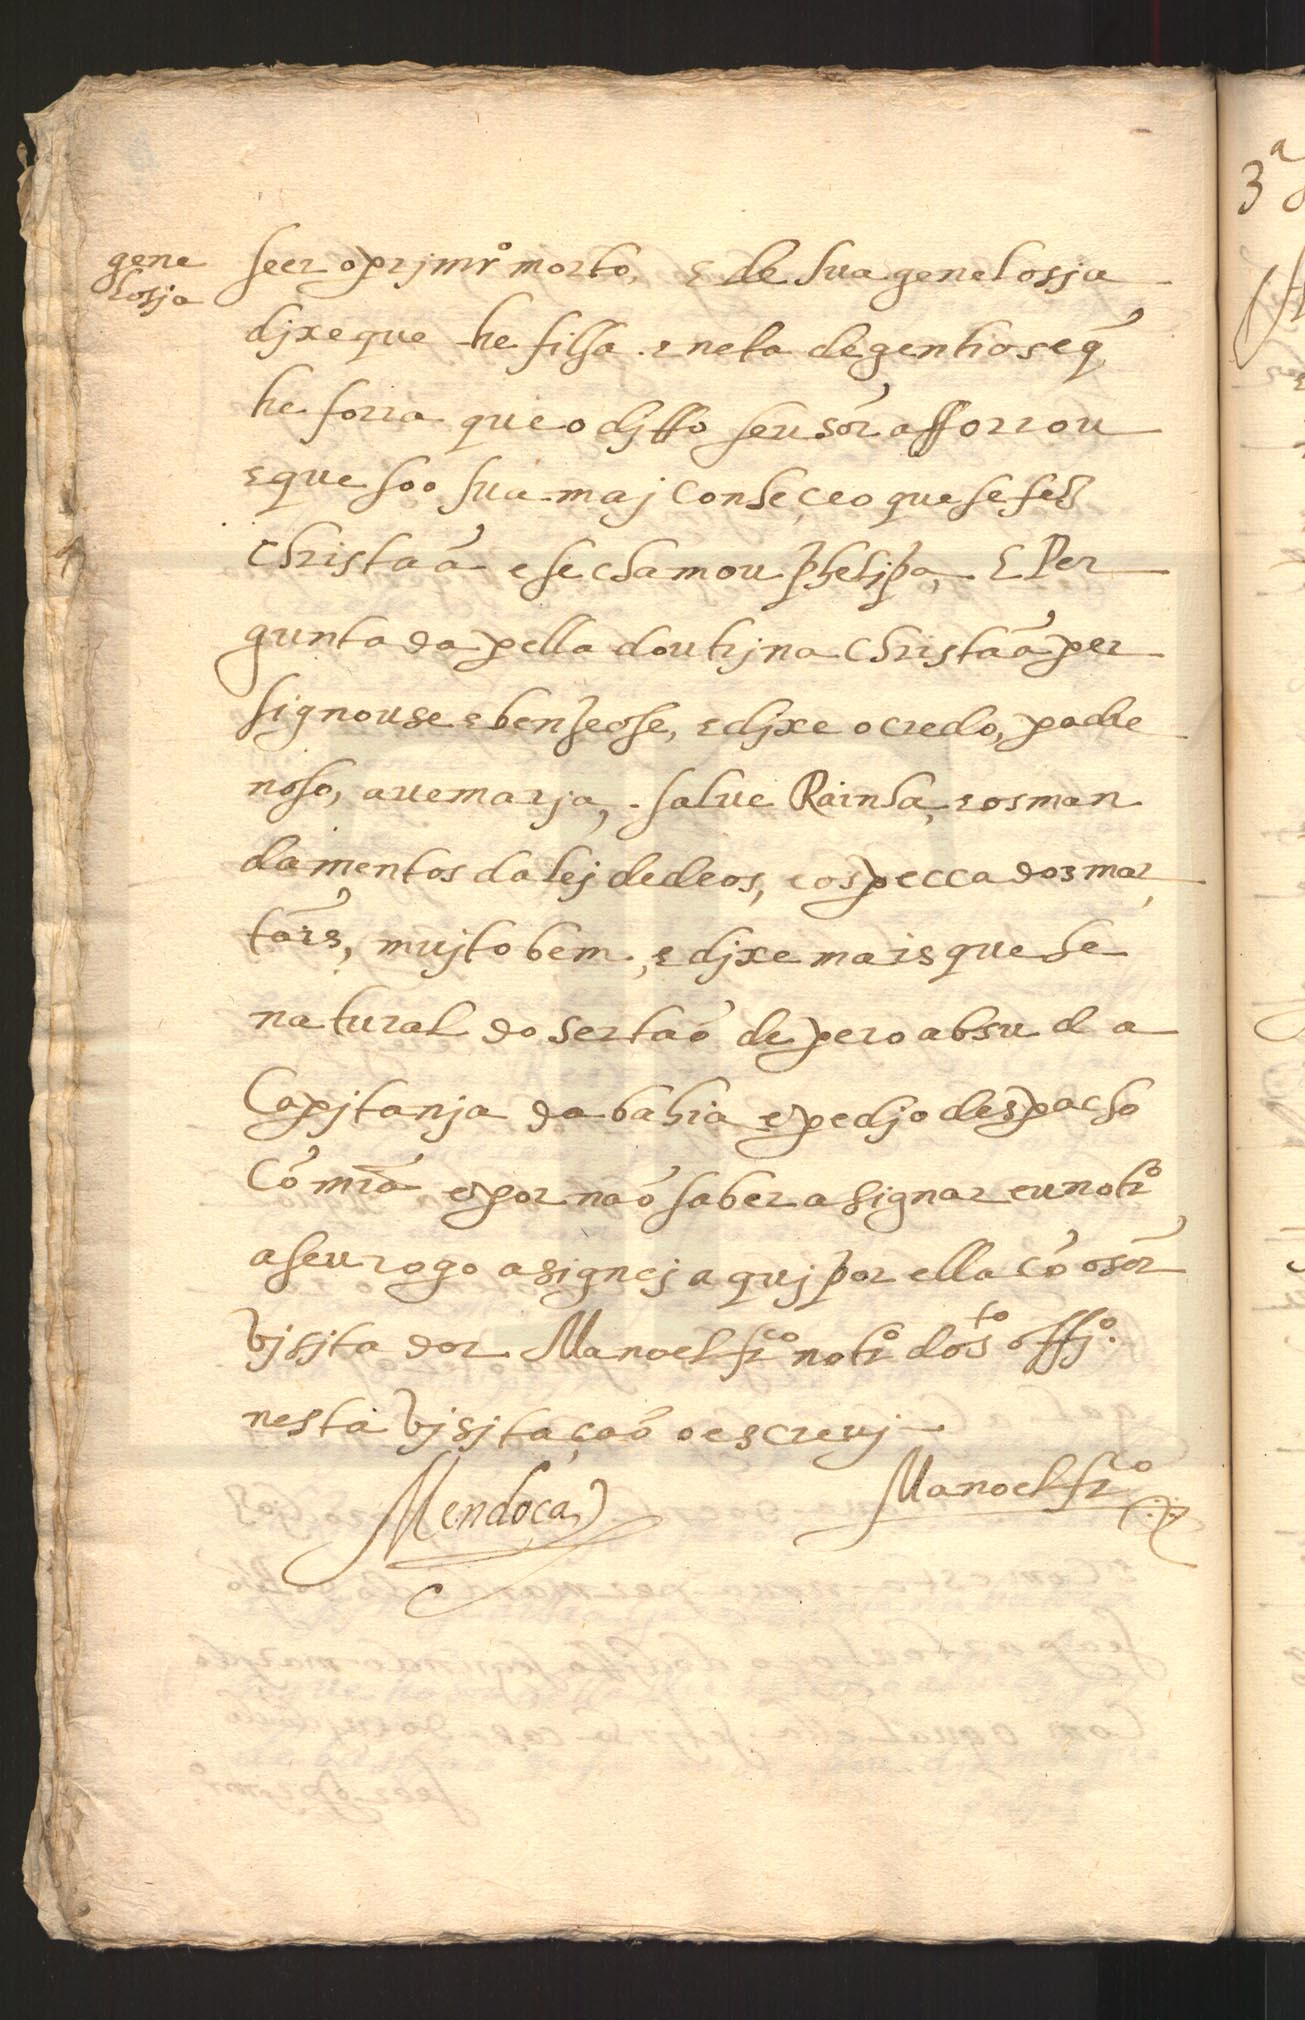 gene
losja
seer o prjmrº morto, e de sua genelosja
djxe que he filha e neta de gentios e q̃
he forra que o djtto seu sõr afforrou
e que soo sua maj conheçeo que se fez
christaã e se chamou phelipa, E Per
guntada pella doutrjna christaã per
signouse e benzeose, e djxe o credo, padre
noso, auemarja, salue Rainha, e os man
damentos da lej de deos, e os peccados mor
tais, mujto bem, e djxe mais que he
natural do sertaõ de
Capitanja da bahia e pedjo despacho
Cõ mrã e por naõ saber asignar eu notrº
a seu rogo asignej aquj por ella cõ o sõr
vjsjtador Manoel frcº notrº do stº offjº
nesta vjsjtaçaõ o escreuj
Mendoça
Manoel frcº
3ª